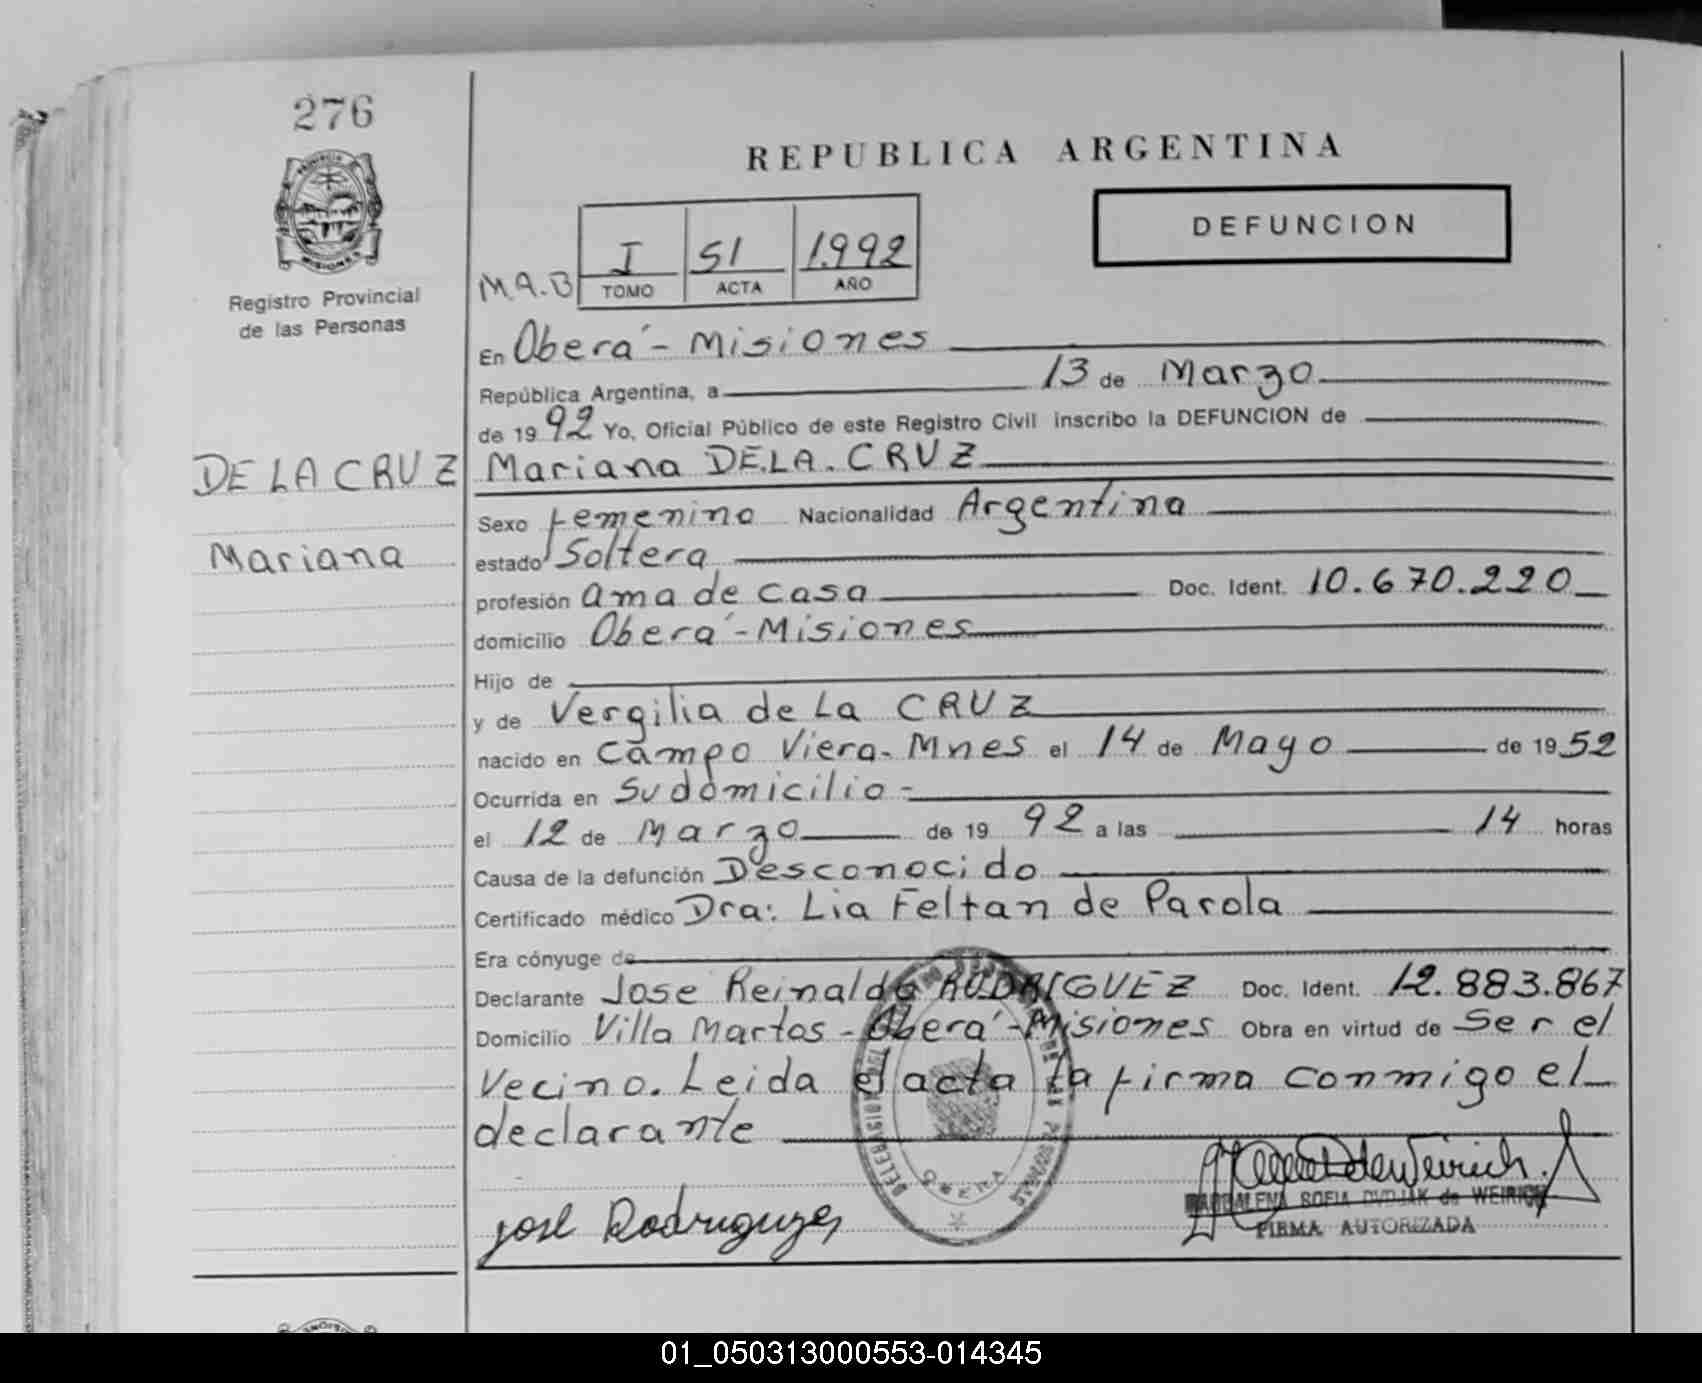 276
PROVINCIA
MISIONES
Registro Provincial
de las Personas
REPUBLICA ARGENTINA
DEFUNCION
M.A.B
I 51 1.992
TOMO ACTA AÑO
En Oberá - Misiones
República Argentina, a 13 de Marzo
de 1992 Yo, Oficial Público de este Registro Civil inscribo la DEFUNCION de
DE LA CRUZ
Mariana
Mariana DE.LA.CRUZ
Sexo femenino Nacionalidad Argentina
estado Soltera
profesión ama de casa Doc. Ident. 10.670.220
domicilio Oberá - Misiones
Hijo de
y de Vergilia de La CRUZ
nacido en Campo Viera - Mnes el 14 de Mayo de 1952
Ocurrida en Su domicilio -
el 12 de Marzo de 1992 a las 14 horas
Causa de la defunción Desconocido
Certificado médico Dra: Lia Feltan de Parola
Era cónyuge de
Declarante Jose Reinaldo RODRIGUEZ Doc. Ident. 12.883.867
Domicilio Villa Martos - Oberá - Misiones Obra en virtud de Ser el
Vecino. Leida el acta la firma conmigo el
declarante
OBERA
José Rodriguzes
MAGDALENA SOFIA DVDJAK de WEIRICH
FIRMA AUTORIZADA
01_050313000553-014345